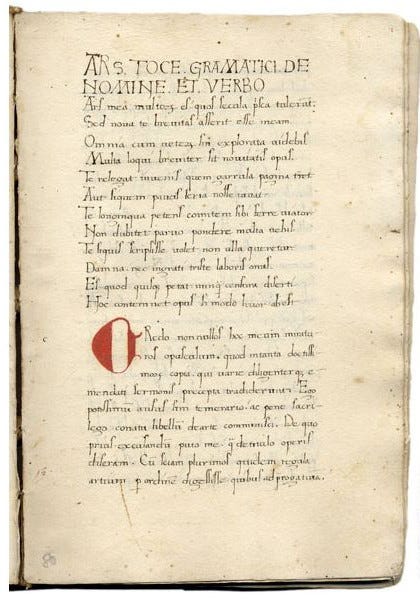 ARS. FOCE. GRAMATICI. DE
NOMINE. ET. VERBO
Ars mea multoꝝ es quos secula pͥsca tulerūt:
Sed noua te breuitas asserit esse meam.
Omnia cum ueteꝝ sīt explorata libellis
Multa loqui breuiter sit nouitatis opus.
Te relegat iuuenis quem garrula pagina tʳret
Aut siquem paucis seria nosse iuuat
Te longinqua petens comitem sibi ferre uiator
Non dubitet paruo pondere multa uehēs
Te siquis scripsisse uolet non ulla queretur
Damna nec ingrati triste laboris onus.
Est quod quisqȝ petat nunqͣ censura diserti
Hoc contemnet opus si modo liuor abest
CRedo nonnullos hoc meum miratu
ros opusculum. quod in tanta doctissi
moꝝ copia. qui uarie diligenterqȝ e
mendati sermonis precepta tradiderunt. Ego
potissimum ausus sim temerario. ac pene sacri
lego. conatu libellū de arte comminisci. De quo
prius excusandū puto me. qͣ de titulo operis
diseram. Cū sciam plurimos quidem regulas
artium p ordinē digessisse. quibus adrogatiua.
80